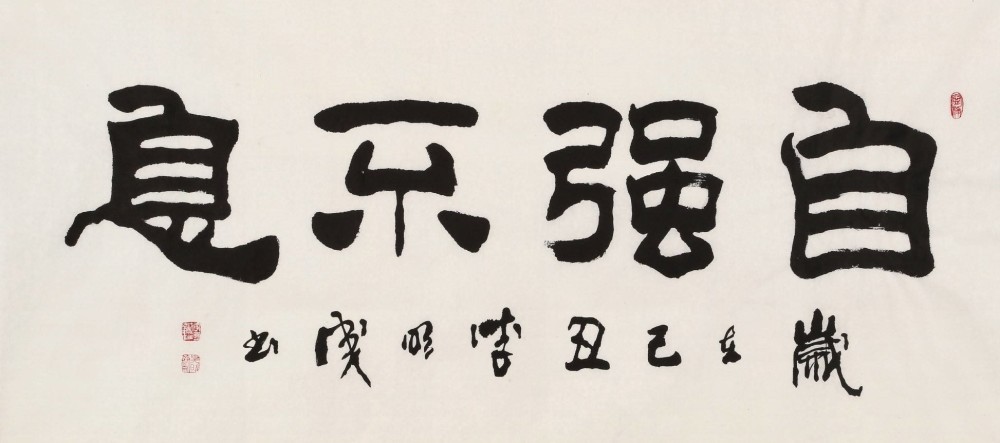 自强不息
歲在己丑 明 书